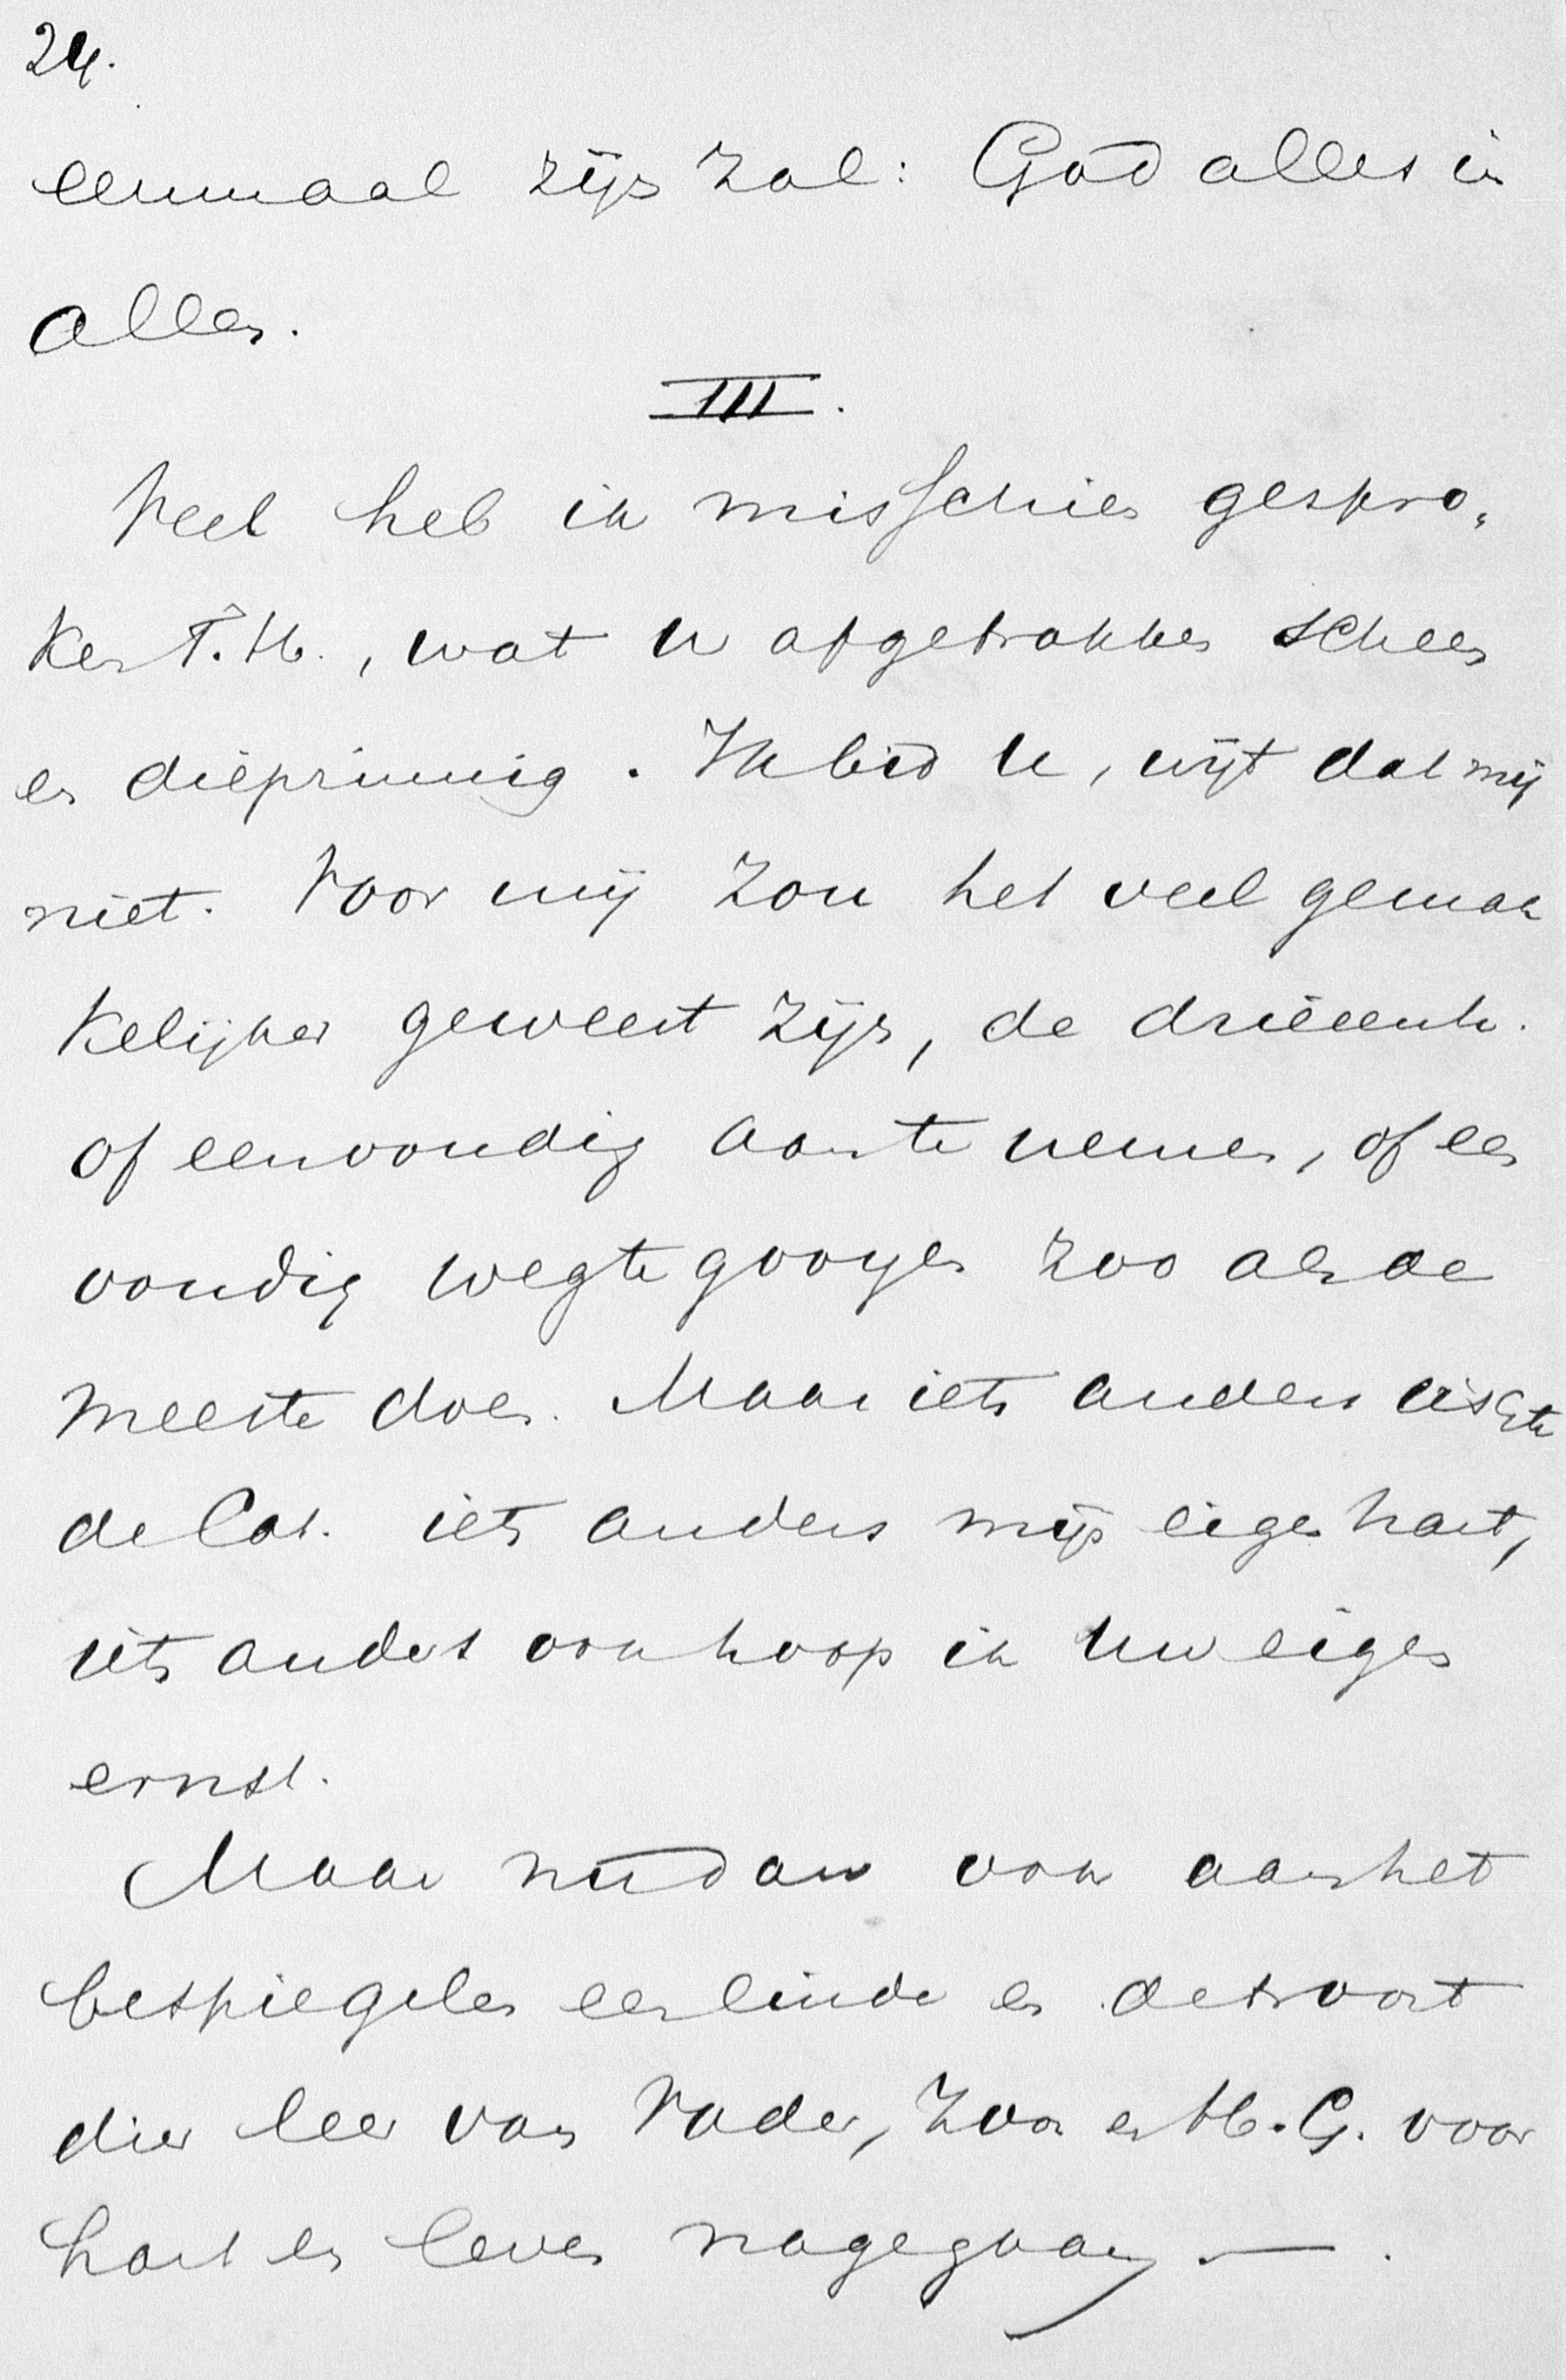 24.
eenmaal zijn zal: God alles in
allen.
III.
Veel heb ik misschien gespro„
ken T. H., wat U afgetrokken scheen
en diepzinnig. Ik bid U, wijt dat mij
niet. Voor mij zou het veel gemak
kelijker geweest zijn, de drieeenh.
of eenvoudig aan te nemen, of een
voudig weg te gooyen zoo als de
meeste doen. Maar iets anders eischte
de Cat. iets anders mijn eigen hart,
iets anders ook hoop ik Uw eigen
ernst.
Maar nu dan ook aan het
bespiegelen een einde en
die leer van Vader, Zoon en H. G. voor
hart en leven nagegaan — .